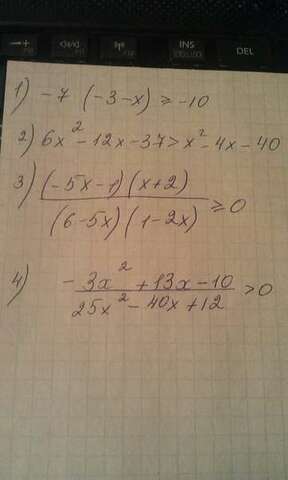 INS DEL
1) -7 (-3-x) ≥ -10
2) 6x² - 12x - 37 > x² - 4x - 40
3) (-5x-1)(x+2)
(6-5x)(1-2x) ≥ 0
4) -3x² + 13x - 10
25x² - 40x + 12 > 0